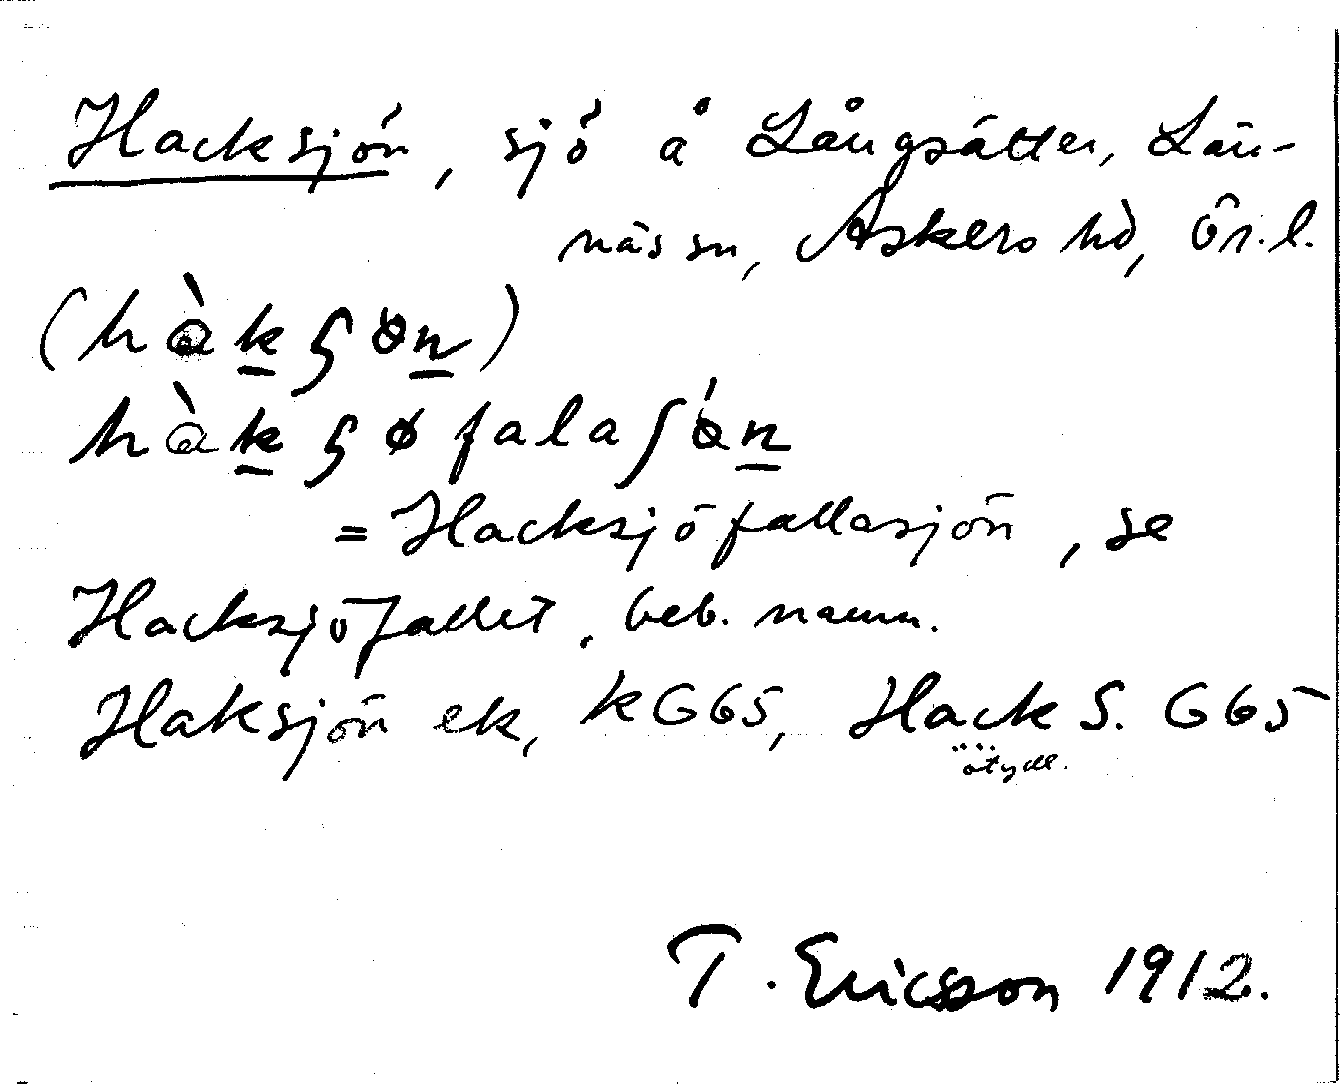 Hacksjön, sjö å Långsätter, Län-
näs sn, Askers hd, Ör. l.
(hàkʃɵn)
hàkʃøfalaʃɵ́n
= Hacksjöfallasjön, se
Hacksjöfallet, beb. namn.
Haksjön ek, kG65, Hack S. G65
otydl.
T. Ericsson 1912.